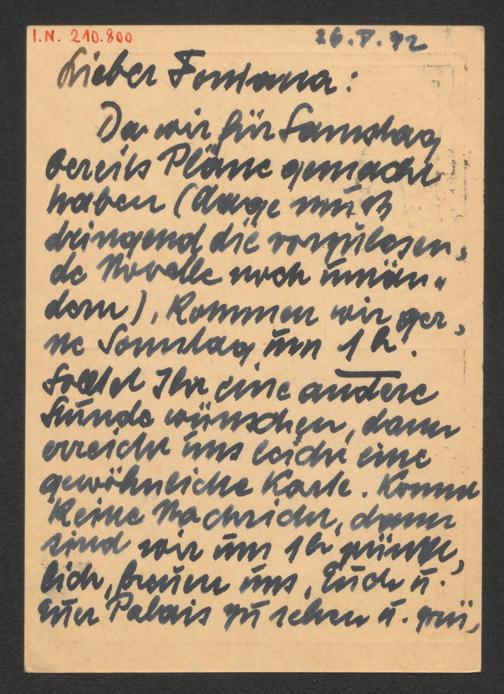 I.N. 210.800
26.V.42
Lieber Fontana:
Da wir für Samstag
bereits Pläne gemacht
haben ( muß
dringend die vorzulesen,
de Novelle noch umän"
dern), kommen wir ger,
ne Sonntag um 1 h.
Solltet Ihr eine andere
Stunde wünschen, dann
erreicht uns leicht eine
gewöhnliche Karte. Kommt
keine Nachricht, dann
sind wir um 1 h pünkt,
lich, freuen uns, Euch u.
Euer Palais zu sehen u. grü,